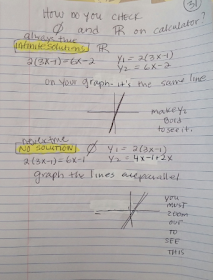 31
How do you check
∅ and ℝ on calculator?
always true
Infinite Solutions ℝ
2(3x-1)=6x-2 y₁ = 2(3x-1)
y₂ = 6x-2
on your graph it's the same line
make y₂
Bold
to see it.
never true
NO SOLUTION ∅ y₁ = 2(3x-1)
2(3x-1)=6x-1 y₂ = 4x-1+2x
graph the lines are parallel
you
must
zoom
out
TO
SEE
THIS